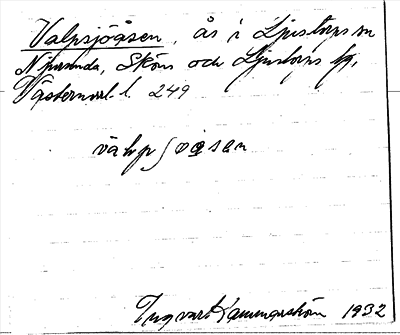 Valpsjöåsen, ås i Ljustorps sn
Njurunda, Sköns och Ljustorps tg,
Västernorrl. l. 249
Ingvar Kammarström 1932